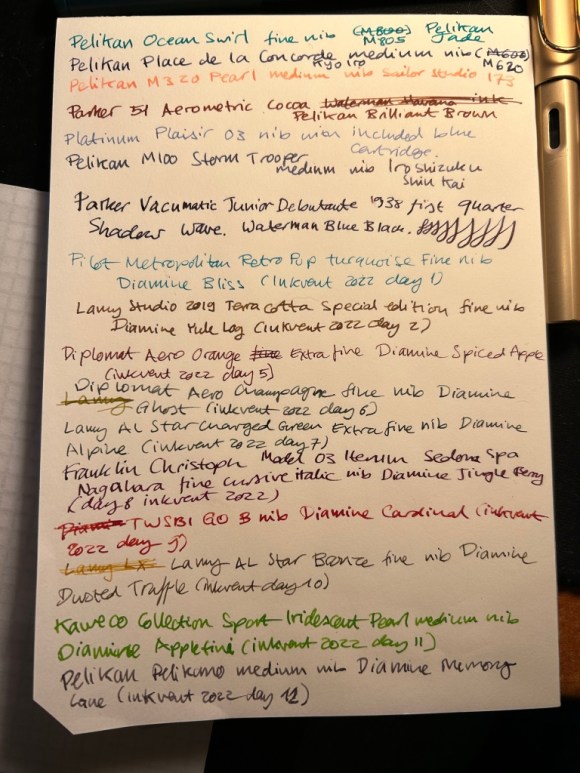 Pelikan Ocean Swirl fine nib (M800) Pelikan
M805 Jade
Pelikan Place de la Concorde medium nib (M602)
Kyo Iro M620
Pelikan M320 Pearl medium nib Sailor Studio 173
Parker 51 Aerometric Cocoa Waterman Havana ink
Pelikan Brilliant Brown
Platinum Plaisir 03 nib with included blue
cartridge.
Pelikan M100 Storm Trooper
medium nib Iroshizuku
Shin Kai
Parker Vacumatic Junior Debutante 1938 first quarter
Shadow Wave. Waterman Blue Black.
Pilot Metropolitan Retro Pop turquoise Fine nib
Diamine Bliss (Inkvent 2022 day 1)
Lamy Studio 2019 Terracotta Special edition fine nib
Diamine Yule Log (inkvent 2022 day 2)
Diplomat Aero Orange fine Extra fine Diamine Spiced Apple
(inkvent 2022 day 5)
Diplomat Aero Champagne fine nib Diamine
Lamy Ghost (inkvent 2022 day 6)
Lamy AL Star Charged Green Extra fine nib Diamine
Alpine (inkvent 2022 day 7)
Franklin Christoph Model 03 Iterum Sedona Spa
Nagahara fine cursive italic nib Diamine Jingle Berry
(day 8 inkvent 2022)
TWSBI GO B nib Diamine Cardinal (inkvent
2022 day 9)
Lamy LX Lamy AL Star Bronze fine nib Diamine
Dusted Truffle (inkvent day 10)
Kaweco Collection Sport Iridescent Pearl medium nib
Diamine Appletini (inkvent 2022 day 11)
Pelikan Pelikano medium nib Diamine Memory
Lane (inkvent 2022 day 12)